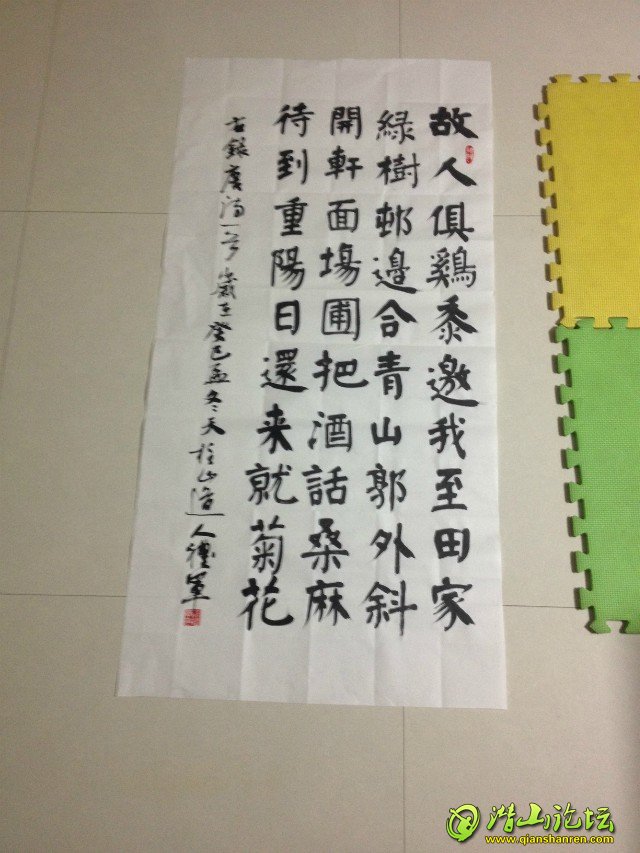 故人俱鷄黍邀我至田家
綠樹邨邊合青山郭外斜
開軒面場圃把酒話桑麻
待到重陽日還来就菊花
古錄唐詩一首歲在癸巳孟冬天柱山道人禮軍
潜山论坛
www.qianshanren.com